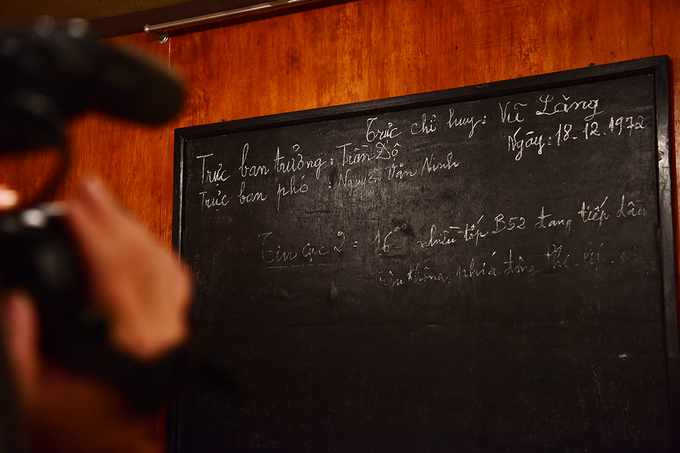 Trực chỉ huy: Vũ Lăng
Ngày: 18.12.1972
Trực ban trưởng: Trần Độ
Trực ban phó : Nguyễn Văn Ninh
Tin cục 2: 16ºº nhiều tốp B52 đang tiếp dầu
trên không, phía đông